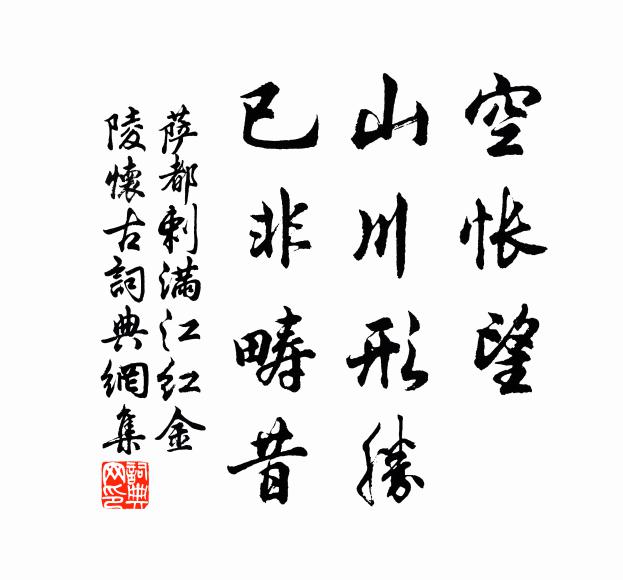 空帐望
山川形勝
已非疇昔
薩都剌滿江红金
陵懷古詞典網集
詞典网印